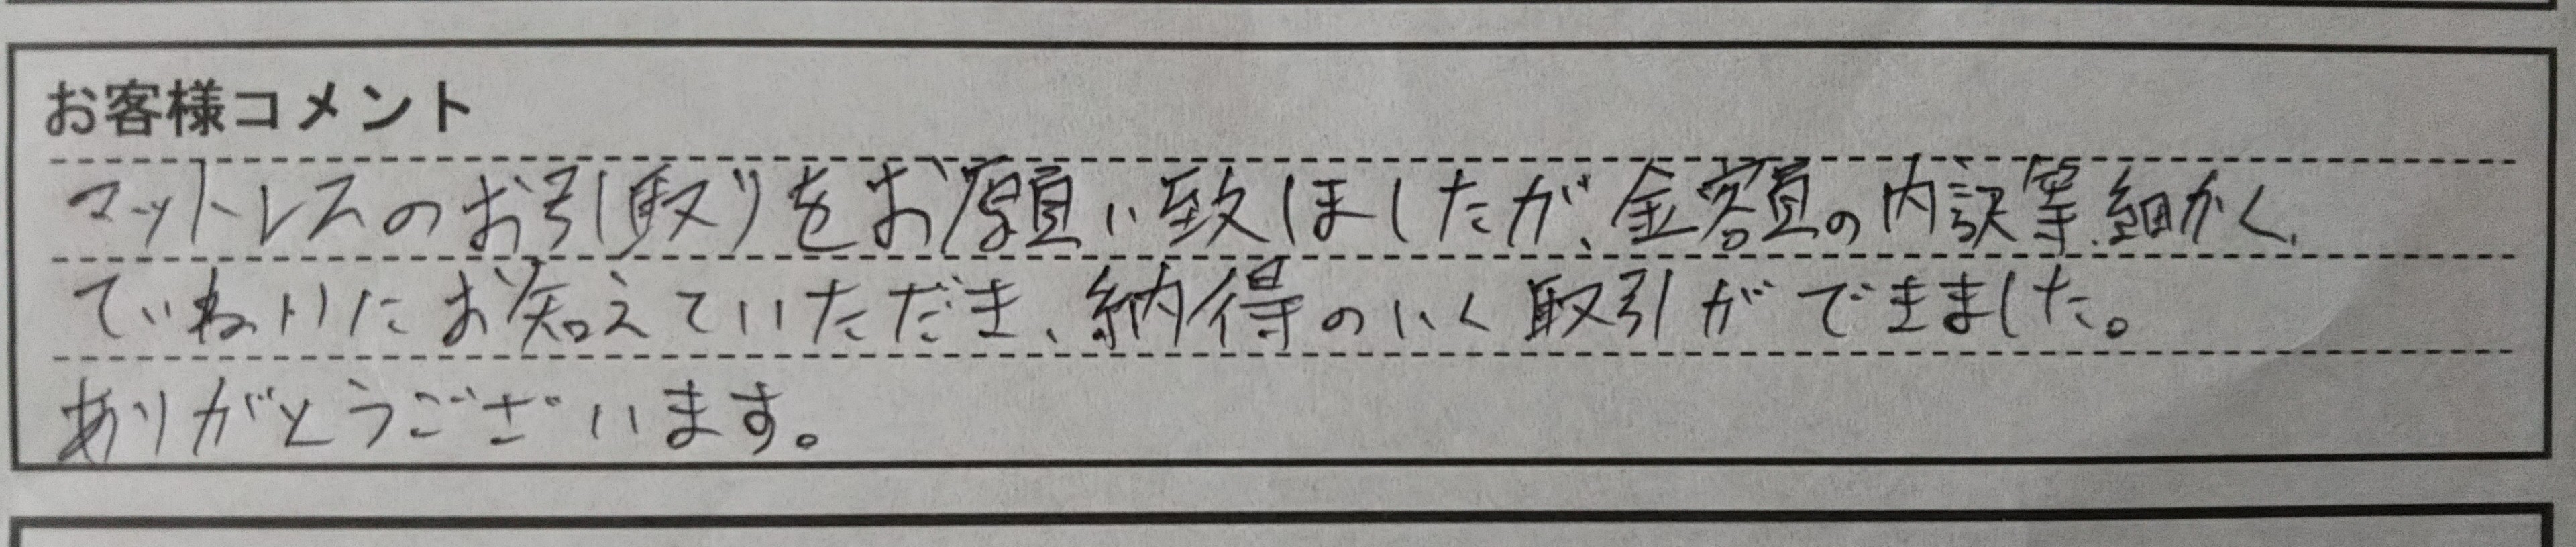 お客様コメント
マットレスのお引取りをお願い致しましたが、金額の内訳等、細かく、
ていねいにお知えていただき、納得のいく取引ができました。
ありがとうございます。